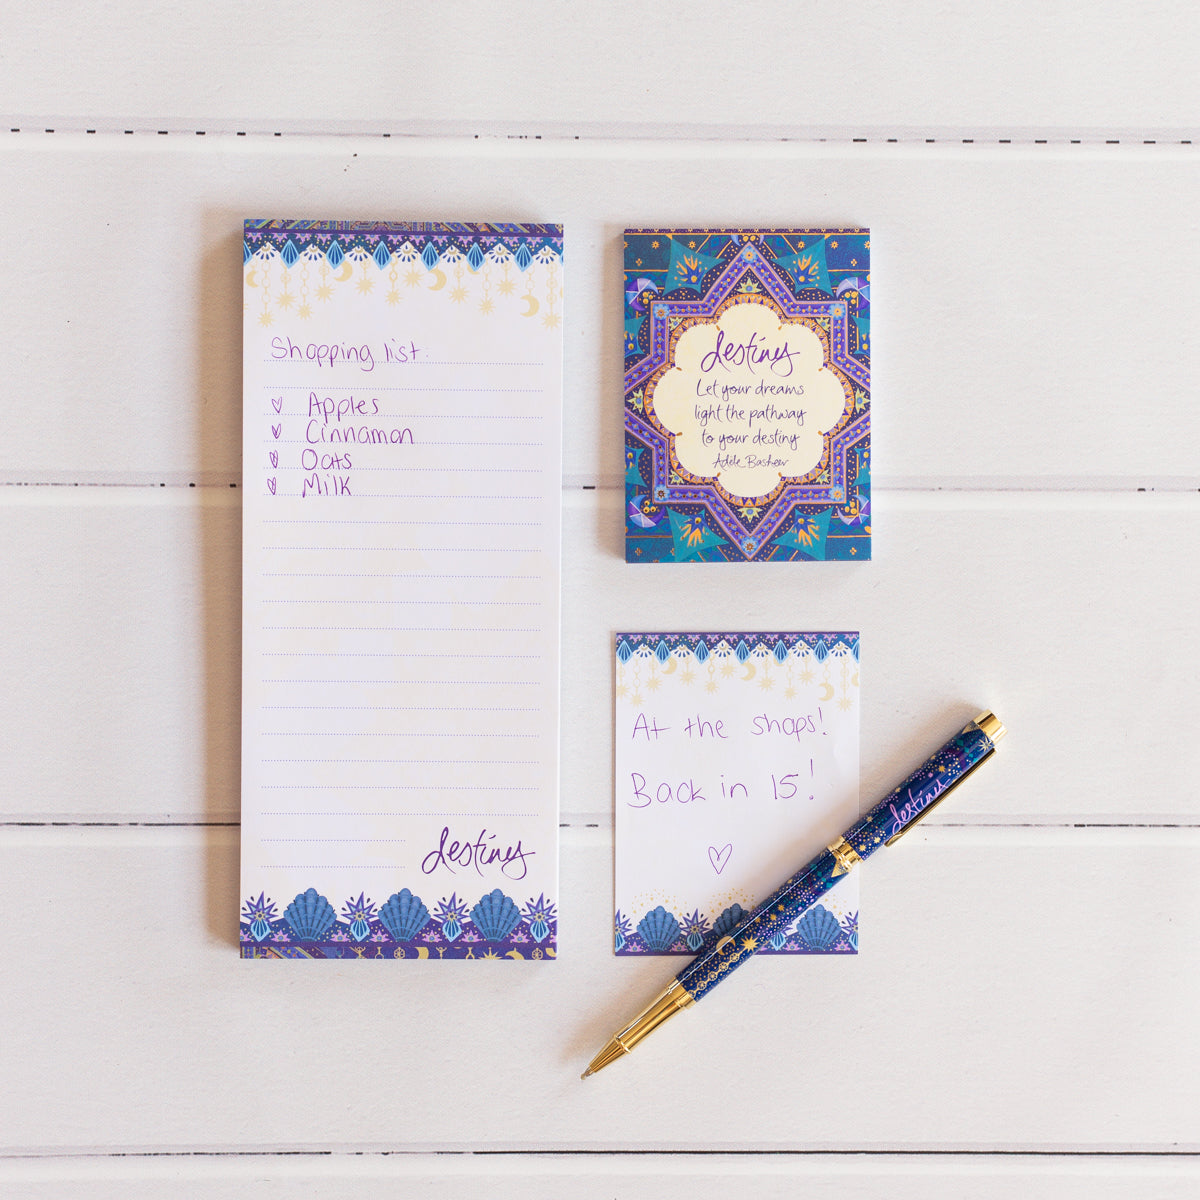 Shopping list:
Apples
Cinnamon
Oats
Milk
destiny
destiny
Let your dreams
light the pathway
to your destiny
Adèle Basheer
At the shops!
Back in 15!
destiny